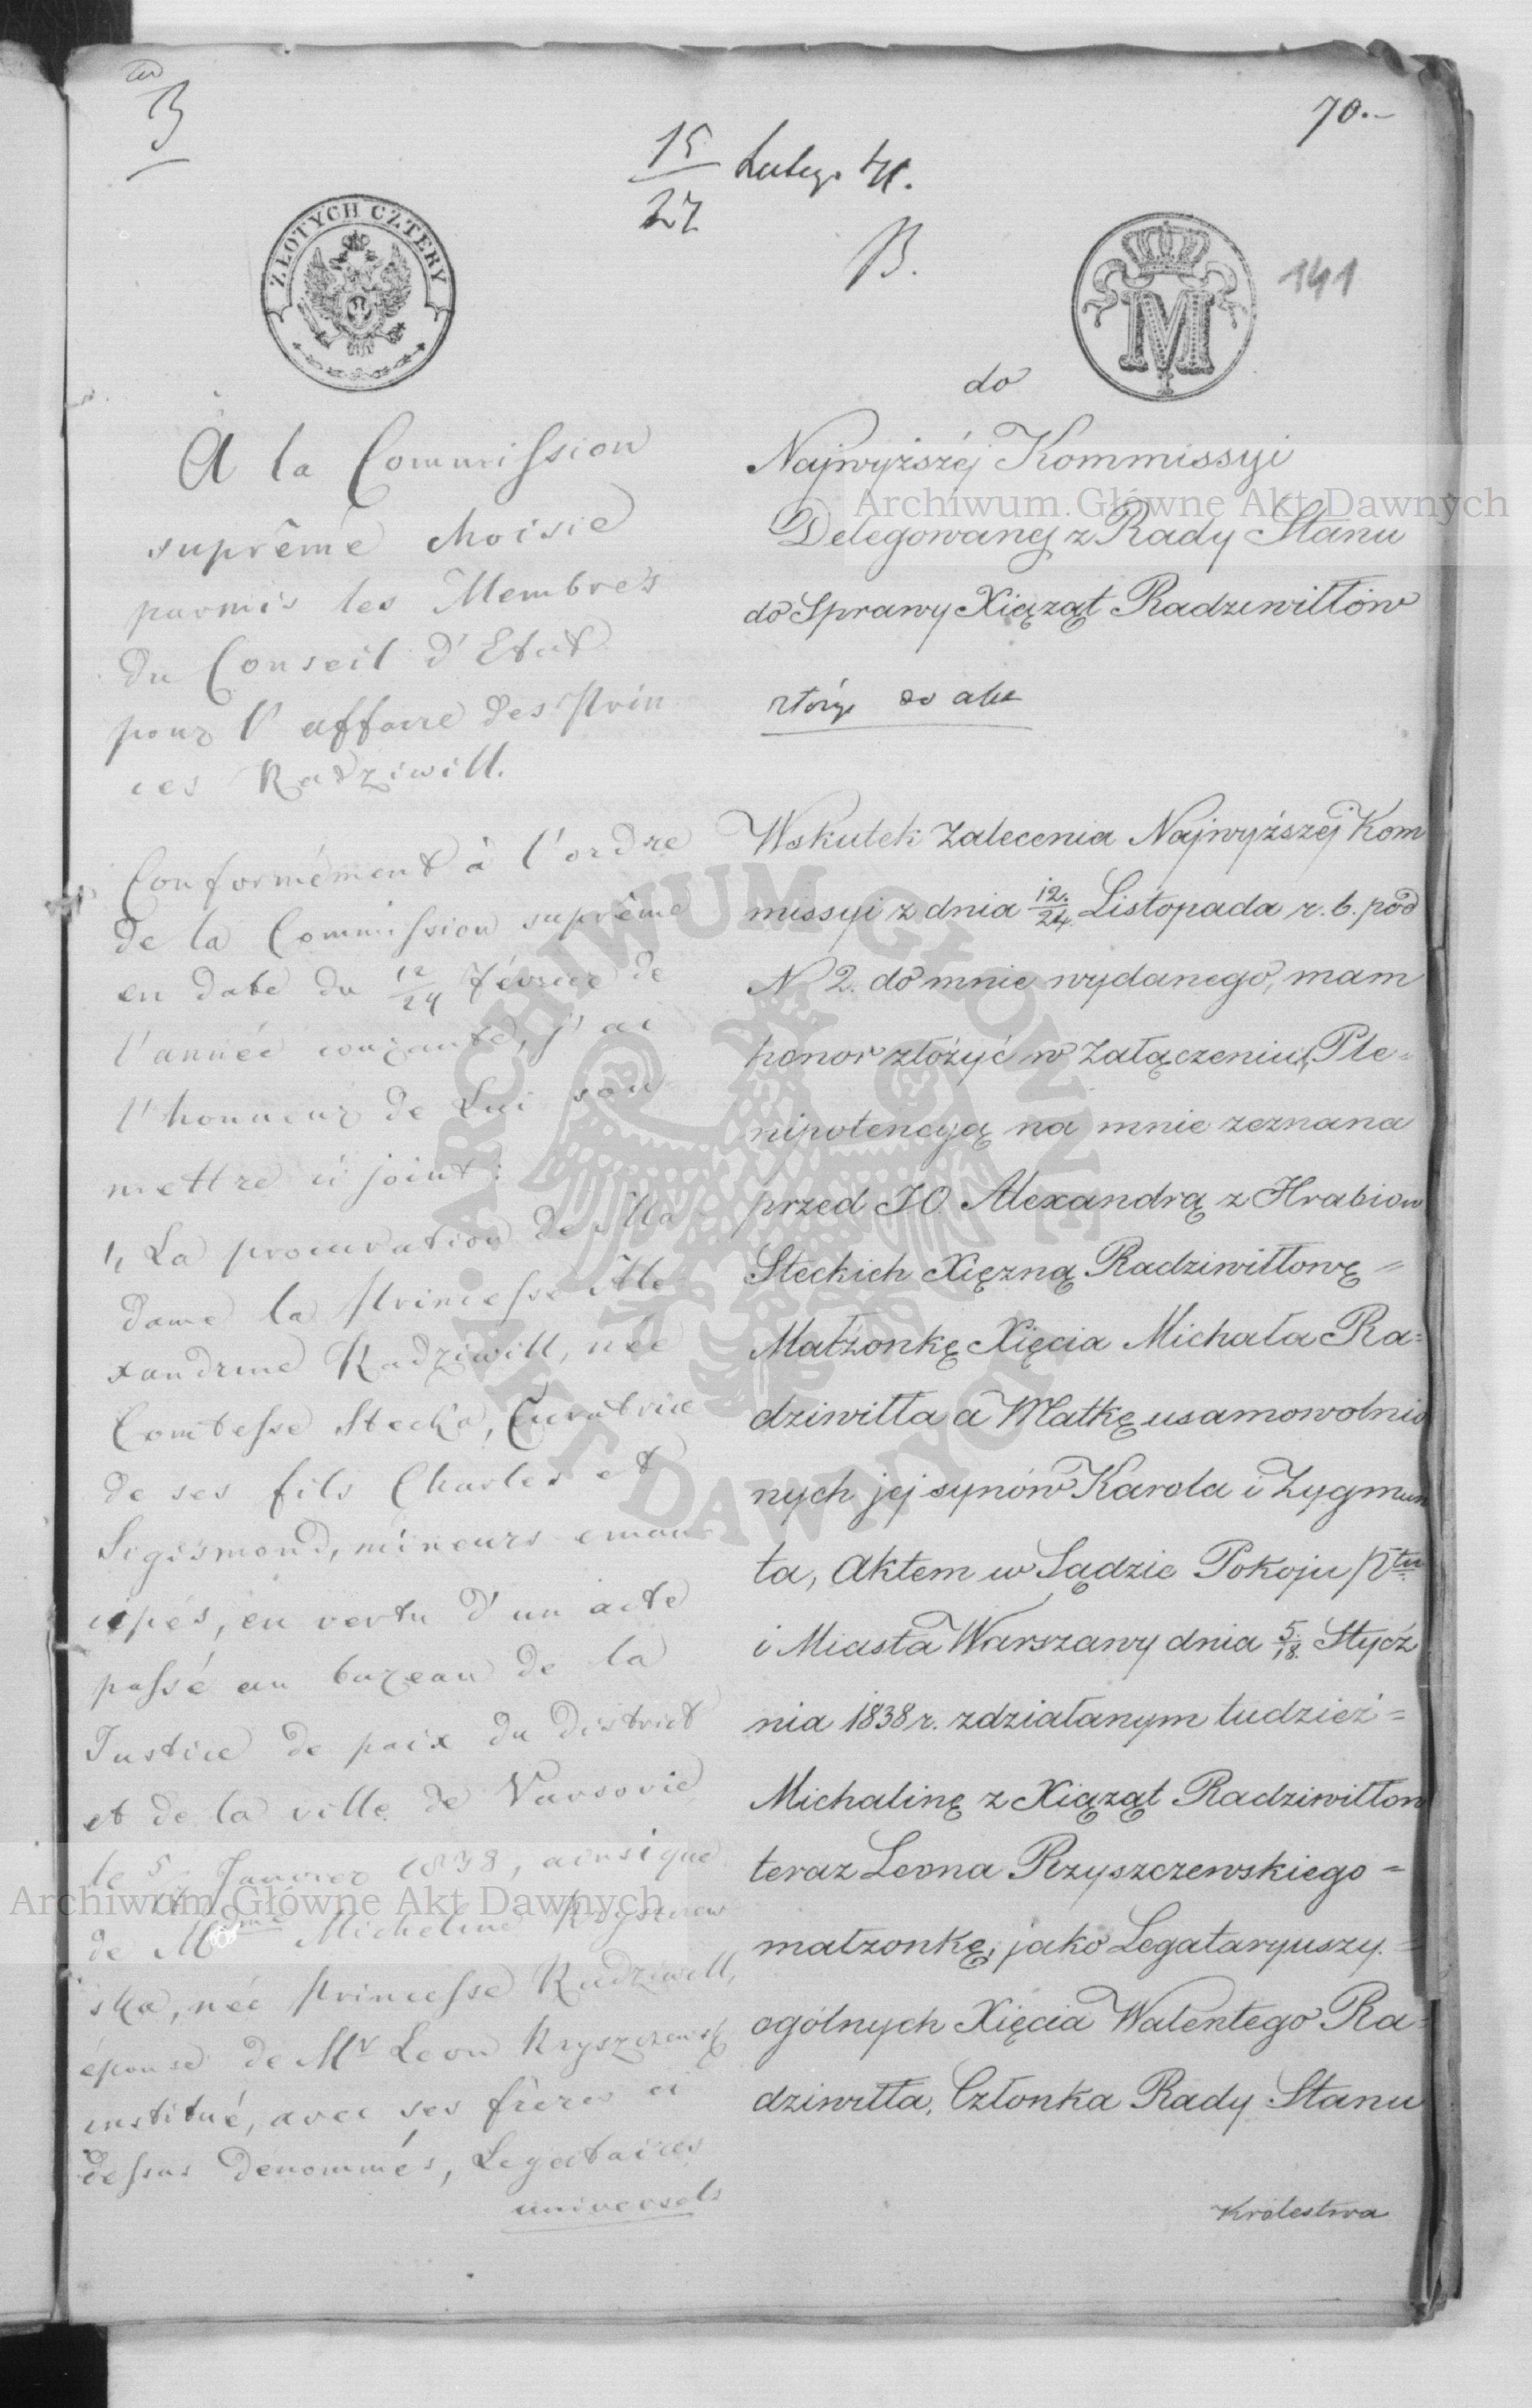 3
70.-
15/27 Lutego 41.
B.
ZŁOTYCH CZTERY
M
141
À la Commission
suprême choisie
parmis les Membres
du Conseil d'Etat
pour l'affaire des Prin
ces Radziwill.
Conformément à l'ordre
de la Commission suprême
en date du 12/24 Février de
l'année courante, j'ai
l'honneur de Lui sou
mettre ci joint:
1, La procuration de Ma
dame la Princesse Ale
xandrine Radziwill, née
Comtesse Stecka, Curatrice
de ses fils Charles et
Sigismond, mineurs eman
cipés, en vertu d'un acte
passé au bureau de la
Justice de paix du District
et de la ville de Varsovie
le 5/ Janvier 1838, ainsi que
de Mme Micheline Rzyszczew
ska, née Princesse Radziwill,
épouse de Mr Leon Rzyszczewski
institué, avec ses frères ci
dessus dénommés, Legataires
universels
do
Najwyższéj Kommissyi
Delegowanej z Rady Stanu
do Sprawy Xiąząt Radziwiłłów
złożyć do akt
Wskutek Zalecenia Najwyższéj Kom
missyi z dnia 12./24. Listopada r. b. pod
N 2. do mnie wydanego, mam
honor złożyć w Załączeniu, Ple=
nipotencyą na mnie zeznana
przed JO. Alexandrą z Hrabiow
Steckich Xięzną Radziwiłłowę =
Małżonkę Xięcia Michała Ra=
dziwiłła a Matkę usamowolnio
nych jej synów Karola i Zygmun
ta, Aktem w Sądzie Pokoju Ptu
i Miasta Warszawy dnia 5./18. Stycz
nia 1838 r. zdziałanym tudzież =
Michalinę z Xiąząt Radziwiłłow
teraz Leona Rzyszczewskiego =
małzonkę, jako Legataryuszy =
ogólnych Xięcia Walentego Ra=
dziwiłła, Członka Rady Stanu
Królestwa
Archiwum Główne Akt Dawnych
Archiwum Główne Akt Dawnych
ARCHIWUM GŁÓWNE
AKT DAWNYCH